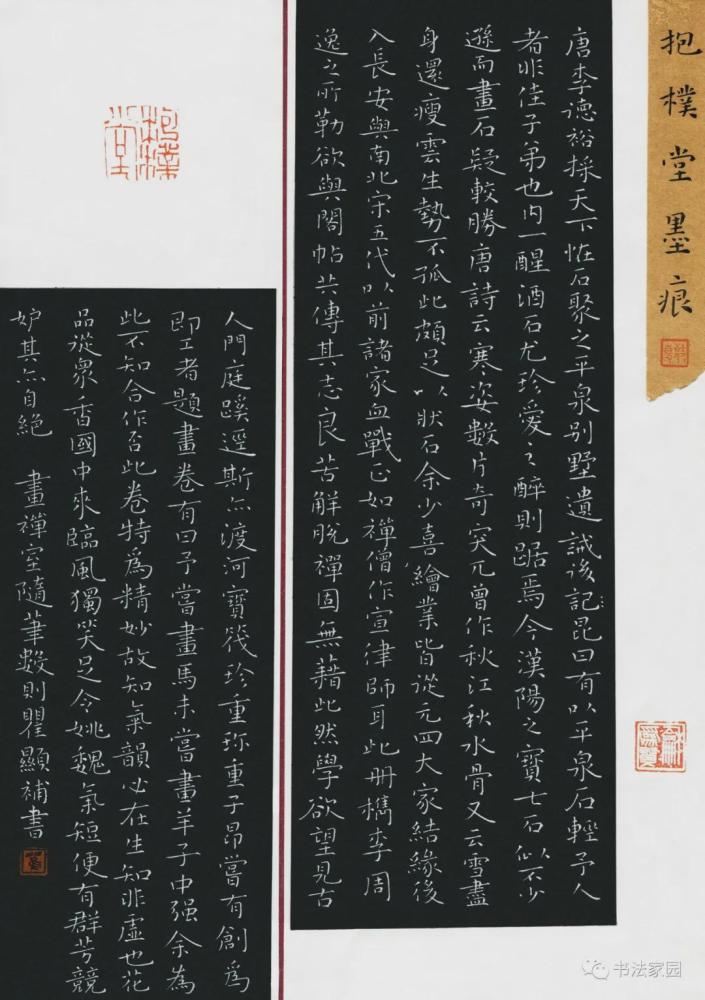 抱樸堂墨痕
唐李德裕採天下恠石聚之平泉别墅遺誡後記昆曰有以平泉石輕予人
者非佳子弟也内一醒酒石尤珍愛之醉則踞焉今漢陽之寳七石似不少
遜而畫石疑較勝唐詩云寒姿數片奇突兀曾作秋江秋水骨又云雪盡
身還瘦雲生勢不孤此頗足以狀石余少喜繪業皆從元四大家結緣後
入長安與南北宋五代以前諸家血戰正如禪僧作宣律師耳此册檇李周
逸之所勒欲與閣帖共傳其志良苦解脫禪固無藉此然學欲望見古
抱樸堂
人門庭蹊逕斯亦渡河寳筏珍重珎重子昂嘗有創為
即工者題畫卷有曰予嘗畫馬未嘗畫羊子中强余為
此不知合作否此卷特爲精妙故知氣韻必在生知非虛也花
品從衆香國中來臨風獨笑足令姚魏氣短便有群芳競
妒其亦自絶 畫禪室隨筆數則瞿顯補書
书法家园